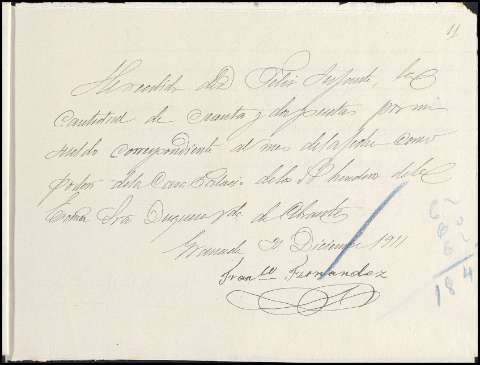 11
He recibido de D. Felix Infante, la
cantidad de cuarenta y dos pesetas por mi
sueldo correspondiente al mes de la fecha como
portero de la Casa Palacio de la
Excma Sra Duquesa de de Abrantes
Granada 31 Diciembre 1911
Franco Fernandez
62
60
62
184